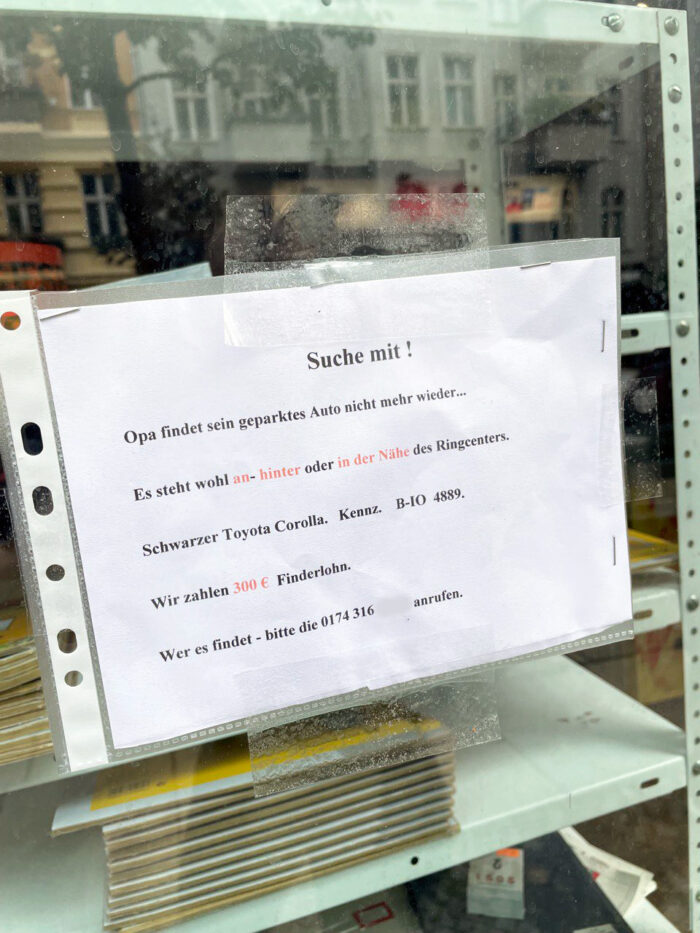 Suche mit !
Opa findet sein geparktes Auto nicht mehr wieder...
Es steht wohl an- hinter oder in der Nähe des Ringcenters.
Schwarzer Toyota Corolla. Kennz. B-IO 4889.
Wir zahlen 300 € Finderlohn.
Wer es findet - bitte die 0174 316 anrufen.